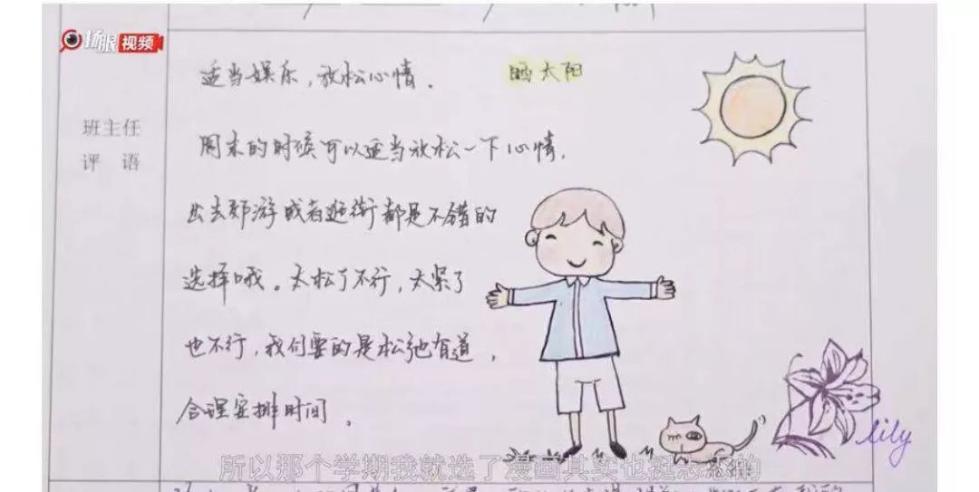 扬眼视频
适当娱乐，放松心情。
晒太阳
班主任
评 语
周末的时候可以适当放松一下心情，
出去郊游或者逛街都是不错的
选择哦。太松了不行，太紧了
也不行，我们要的是松弛有道，
合理安排时间。
lily
所以那个学期我就选了漫画其实也挺忐忑的